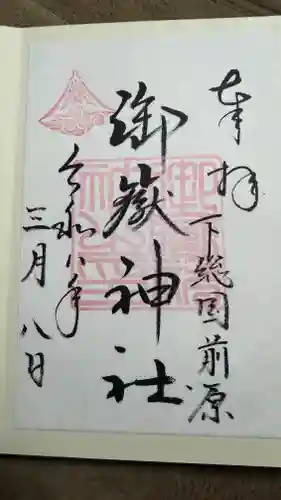 奉拝
下総国前原
御嶽神社
令和八年
三月八日